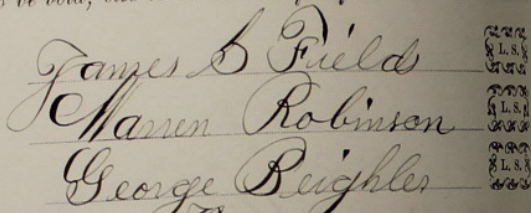 James S Fields L. S.
Warren Robinson L. S.
George Beighler L. S.